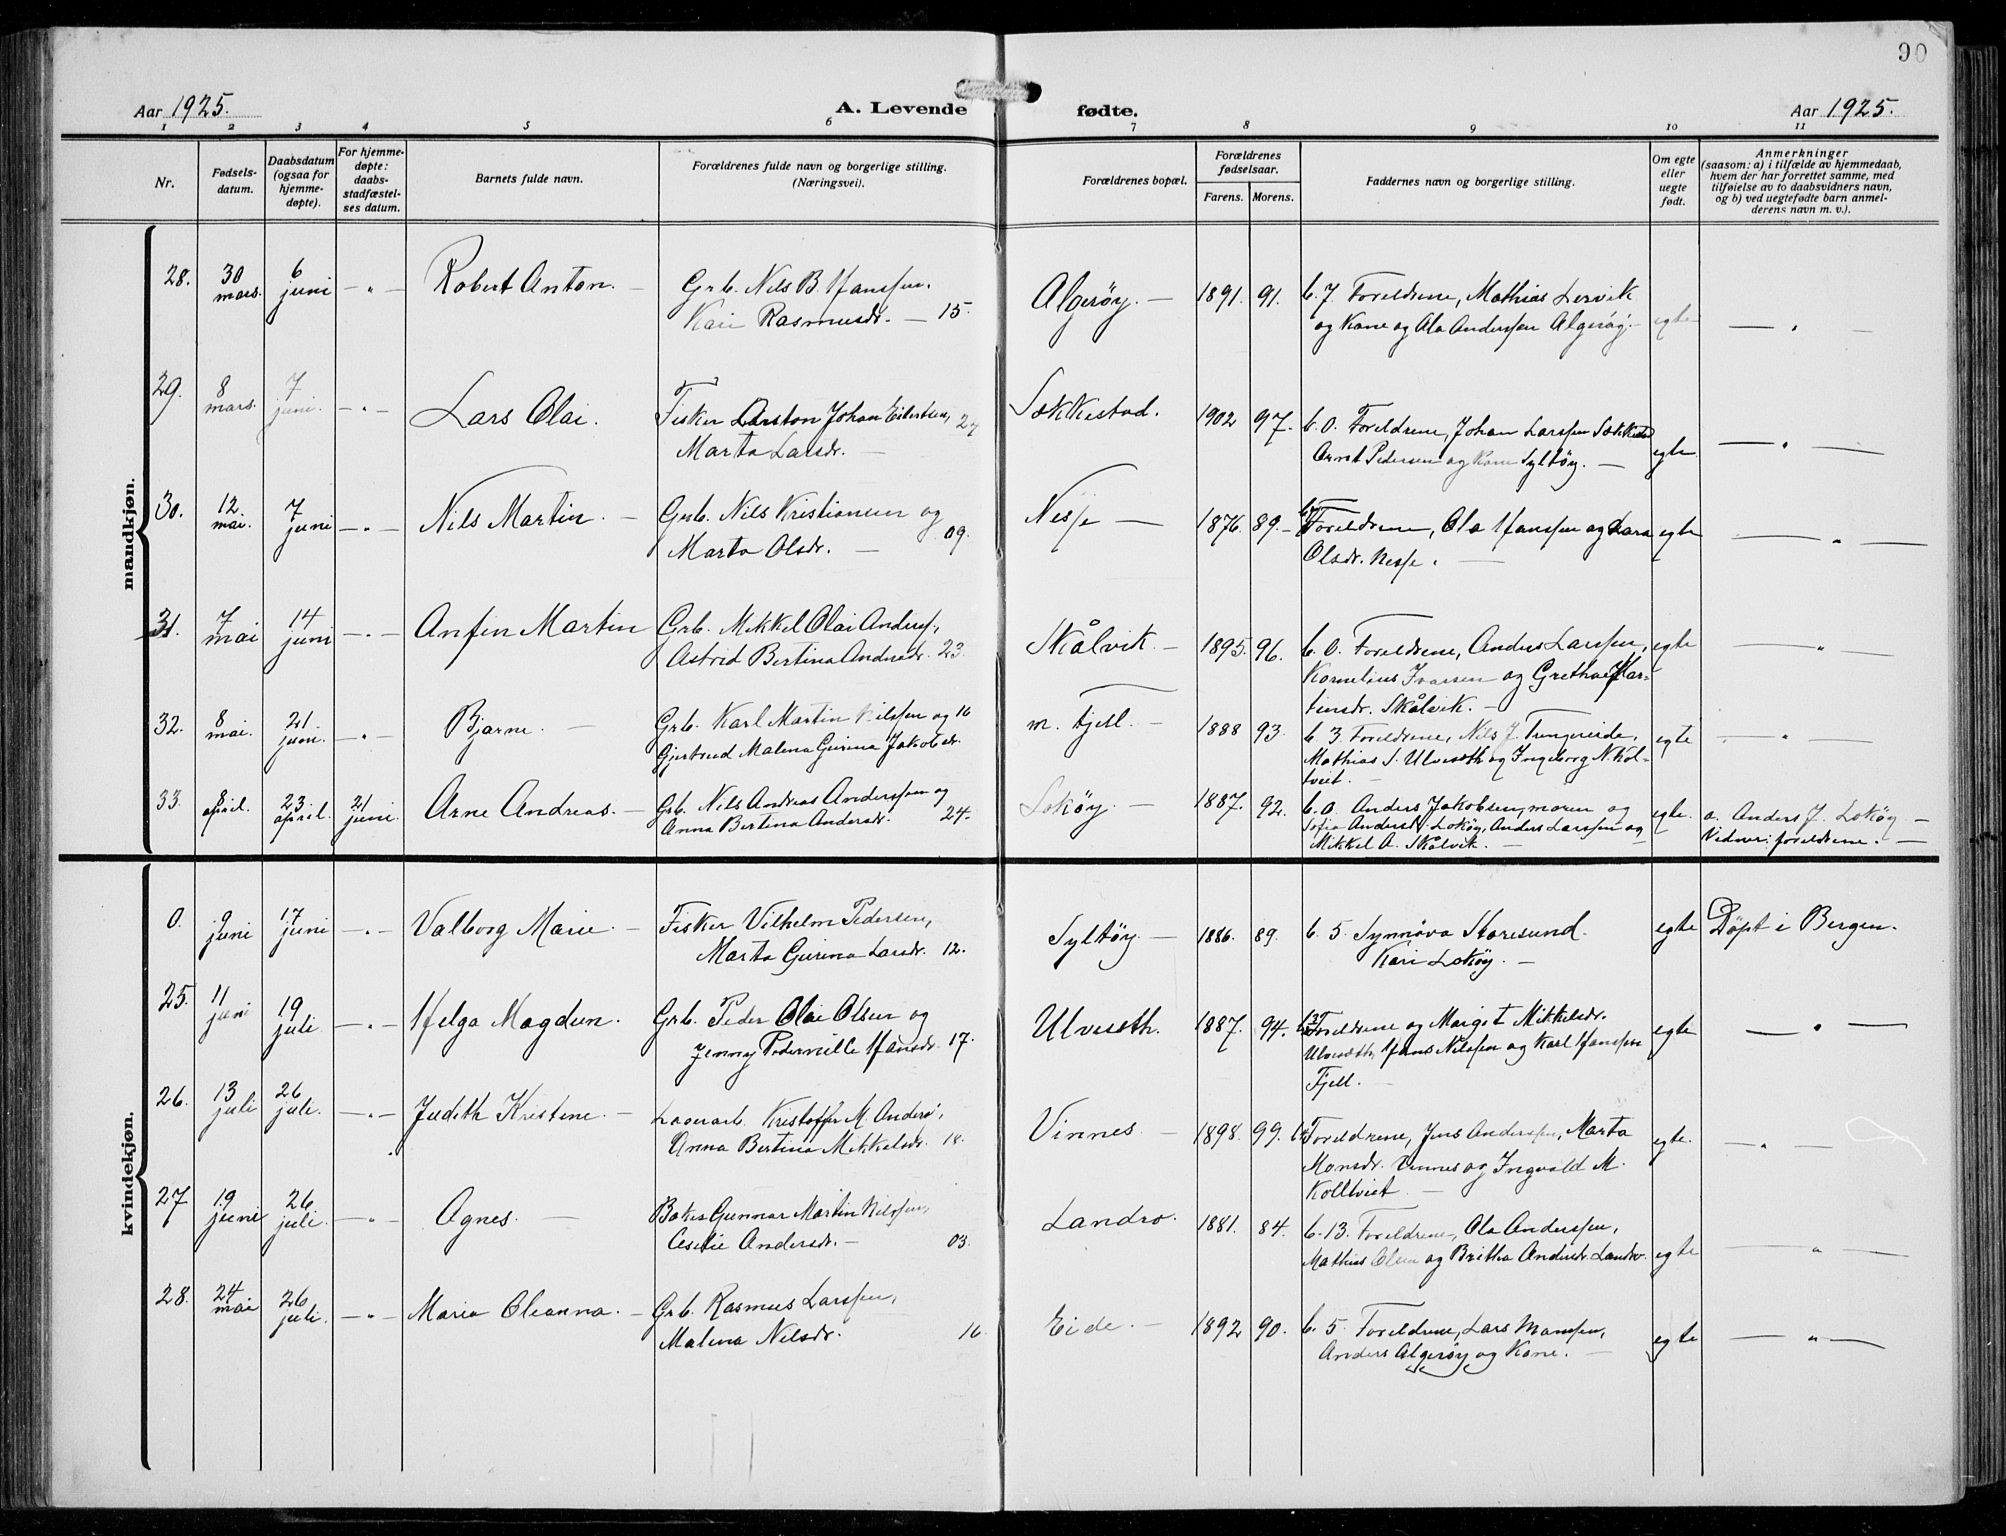 90
Aar 1925. A. Levende fødte. Aar 1925.
1 2 3 4 5 6 7 8 9 10 11
Nr.
Fødsels-
datum.
Daabsdatum
(ogsaa for
hjemme-
døpte).
For hjemme-
døpte:
daabs-
stadfæstel-
ses datum.
Barnets fulde navn.
Forældrenes fulde navn og borgerlige stilling.
(Næringsvei).
Forældrenes bopæl.
Forældrenes
fødselsaar.
Farens. Morens.
Faddernes navn og borgerlige stilling.
Om egte
eller
uegte
født.
Anmerkninger
(saasom: a) i tilfælde av hjemmedaab,
hvem der har forrettet samme, med
tilføielse av to daabsvidners navn,
og b) ved uegtefødte barn anmel-
derens navn m. v.).
mandkjøn.
28. 30 mars. 6 juni — " — Robert Anton. — Grb. Nils B. Hanssen, Algerøy. — 1891. 91. 6. 7. Foreldrene, Mathias Lervik egte — " —
Kari Rasmusdr. — 15. og Kone og Ola Anderssen Algerøy. —
29. 8 mars. 7 juni. — " — Lars Olai. Fisker Larston Johan Eilertsen, 24 Sekkestad. 1902 97. 6. 0. Foreldrene, Johan Larssen Sekkestad egte — " —
Marta Larsdr. — Arnt Pedersen og Kone Syltøy. —
30. 12. mai. 7 juni — " — Nils Martin. — Grb. Nils Kristiansen og Nesse — 1876. 89. — Foreldrene, Ola Hanssen og Lara egte — " —
Marta Olsdr. — 09. Olsdr. Nesse. —
31. 7 mai 14 juni — " — Anfin Martin Grb. Mikkel Olai Anderss, Skålvik. — 1895. 96. 6. 0. Foreldrene, Anders Larssen, egte — " —
Astrid Bertina Andersdr. 23. Kornelius Ivarsen og Grethe Mar-
tinsdr. Skålvik. —
32. 8 mai. 21. juni. — " — Bjarne. — Grb. Karl Martin Nilssen og 16 m. Fjell. — 1888 93. 6. 3. Foreldrene, Nils J. Tungeseide, egte — " —
Gjertrud Malena Gurina Jakobsdr. Mathias S. Ulveseth og Ingeborg N. Kol-
tveit. —
33. 8 april. 23 april. 21 juni. Arne Andreas. — Grb. Nils Andreas Anderssen og Lokøy. — 1887. 92. 6. 0. Anders Jakobsen, moren og egte. a. Anders J. Lokøy. —
Anna Bertina Andersdr. 24. Sofia Andersdr. Lokøy, Anders Larssen og Vidner: foreldrene. —
Mikkel A. Skålvik. —
kvindekjøn.
0. 9 juni 17 juni — " — Valborg Marie. — Fisker Vilhelm Pedersen, Syltøy — 1886. 89. 6. 5. Synnøva Storesund. egte Døpt i Bergen.
Marta Gurina Larsdr. 12. Kari Lokøy. —
25. 11 juni 19 juli — " — Helga Magdun. Grb. Peder Olai Olsen og Ulveseth. 1887. 94. Foreldrene og Margit Mikkelsdr. egte — " —
Jenny Pedernille Hansdr. 17. Ulveseth, Hans Nilssen og Karl Hanssen
Fjell. —
26. 13 juli 26 juli. — " — Judith Kristine. — Lagerarb. Kristoffer M. Anders, Vinnes. — 1898. 99. Foreldrene, Jens Anderssen, Marta egte. — " —
Anna Bertina Mikkelsdr. 18. Monsdr. Vinnes og Ingvald M.
Kolltveit. —
27 19 juni 26 juli. — " — Agnes. — Baker Gunnar Martin Nilssen, Landro. 1881. 84. 6. 13. Foreldrene, Ola Anderssen, egte — " —
Cesilie Andersdr. — 03. Mathias Olsen og Britha Andersdr. Landro.
28. 24 mai 26 juli. — " — Maria Oleanna. — Grb. Rasmus Larssen, Eide. — 1892 90. 6. 5. Foreldrene, Lars Monssen, egte — " —
Malena Nilsdr. 16. Anders Algerøy og Kone. —